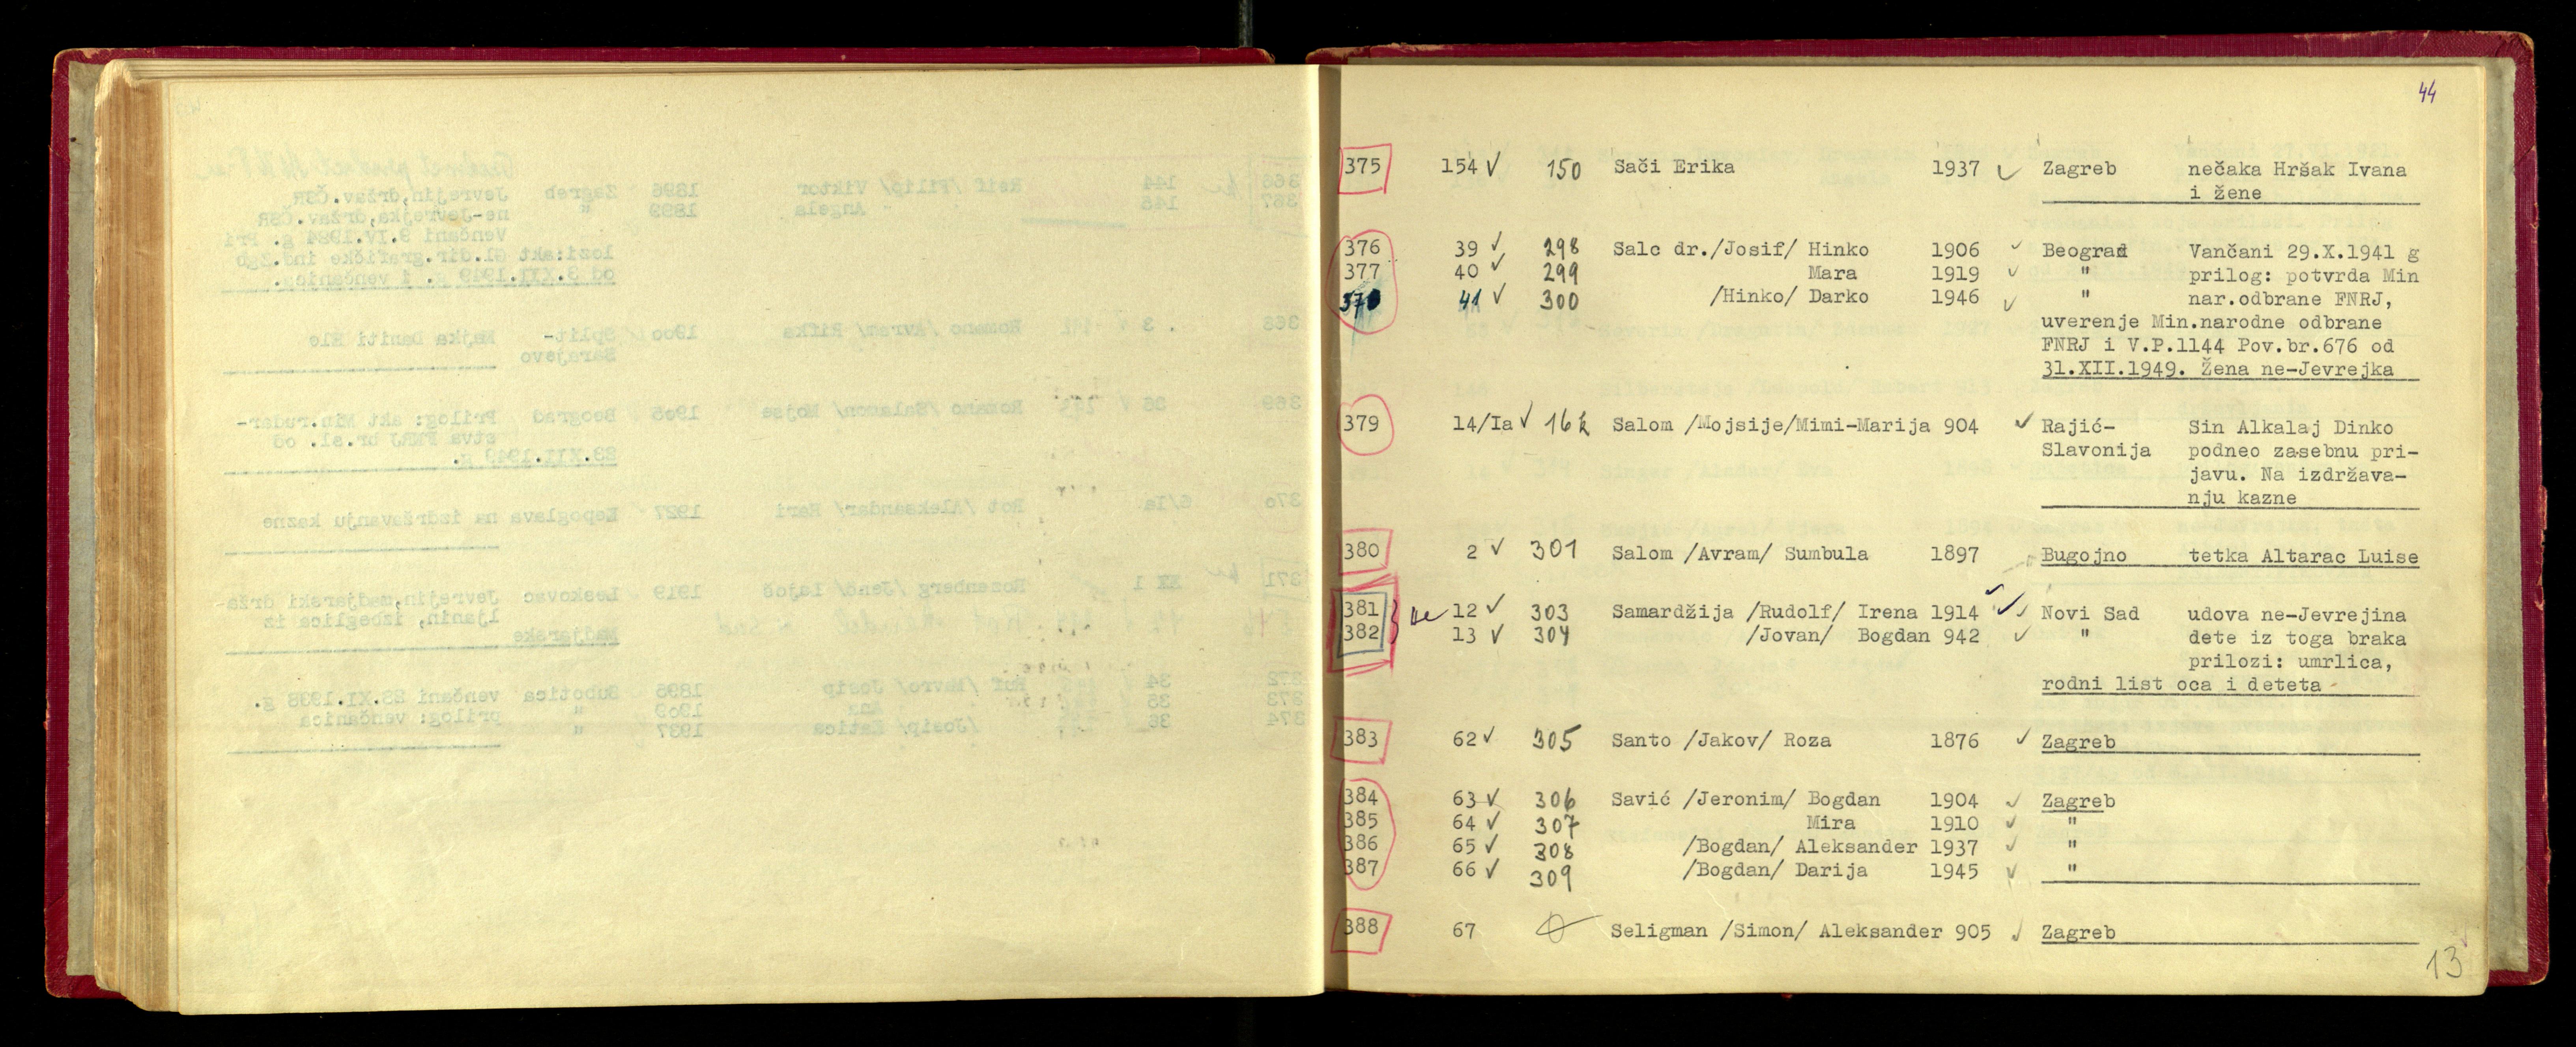 44
375 154 ✓ 150 Sači Erika 1937 ✓ Zagreb nečaka Hršak Ivana
i žene
376 39 ✓ 298 Salc dr./Josif/ Hinko 1906 ✓ Beograd Vančani 29.X.1941 g
377 40 ✓ 299 Mara 1919 ✓ " prilog: potvrda Min
378 41 ✓ 300 /Hinko/ Darko 1946 ✓ " nar.odbrane FNRJ,
uverenje Min.narodne odbrane
FNRJ i V.P.1144 Pov.br.676 od
31.XII.1949. Žena ne-Jevrejka
379 14/Ia ✓ Salom /Mojsije/Mimi-Marija 904 ✓ Rajić- Sin Alkalaj Dinko
Slavonija podneo zasebnu pri-
javu. Na izdržava-
nju kazne
380 2 ✓ 301 Salom /Avram/ Sumbula 1897 Bugojno tetka Altarac Luise
381 ne 12 ✓ 303 Samardžija /Rudolf/ Irena 1914 ✓ ✓ Novi Sad udova ne-Jevrejina
382 13 ✓ 304 /Jovan/ Bogdan 942 ✓ " dete iz toga braka
prilozi: umrlica,
rodni list oca i deteta
383 62 ✓ 305 Santo /Jakov/ Roza 1876 ✓ Zagreb
384 63 ✓ 306 Savić /Jeronim/ Bogdan 1904 ✓ Zagreb
385 64 ✓ 307 Mira 1910 ✓ "
386 65 ✓ 308 /Bogdan/ Aleksander 1937 ✓ "
387 66 ✓ 309 /Bogdan/ Darija 1945 ✓ "
388 67 Seligman /Simon/ Aleksander 905 ✓ Zagreb
13